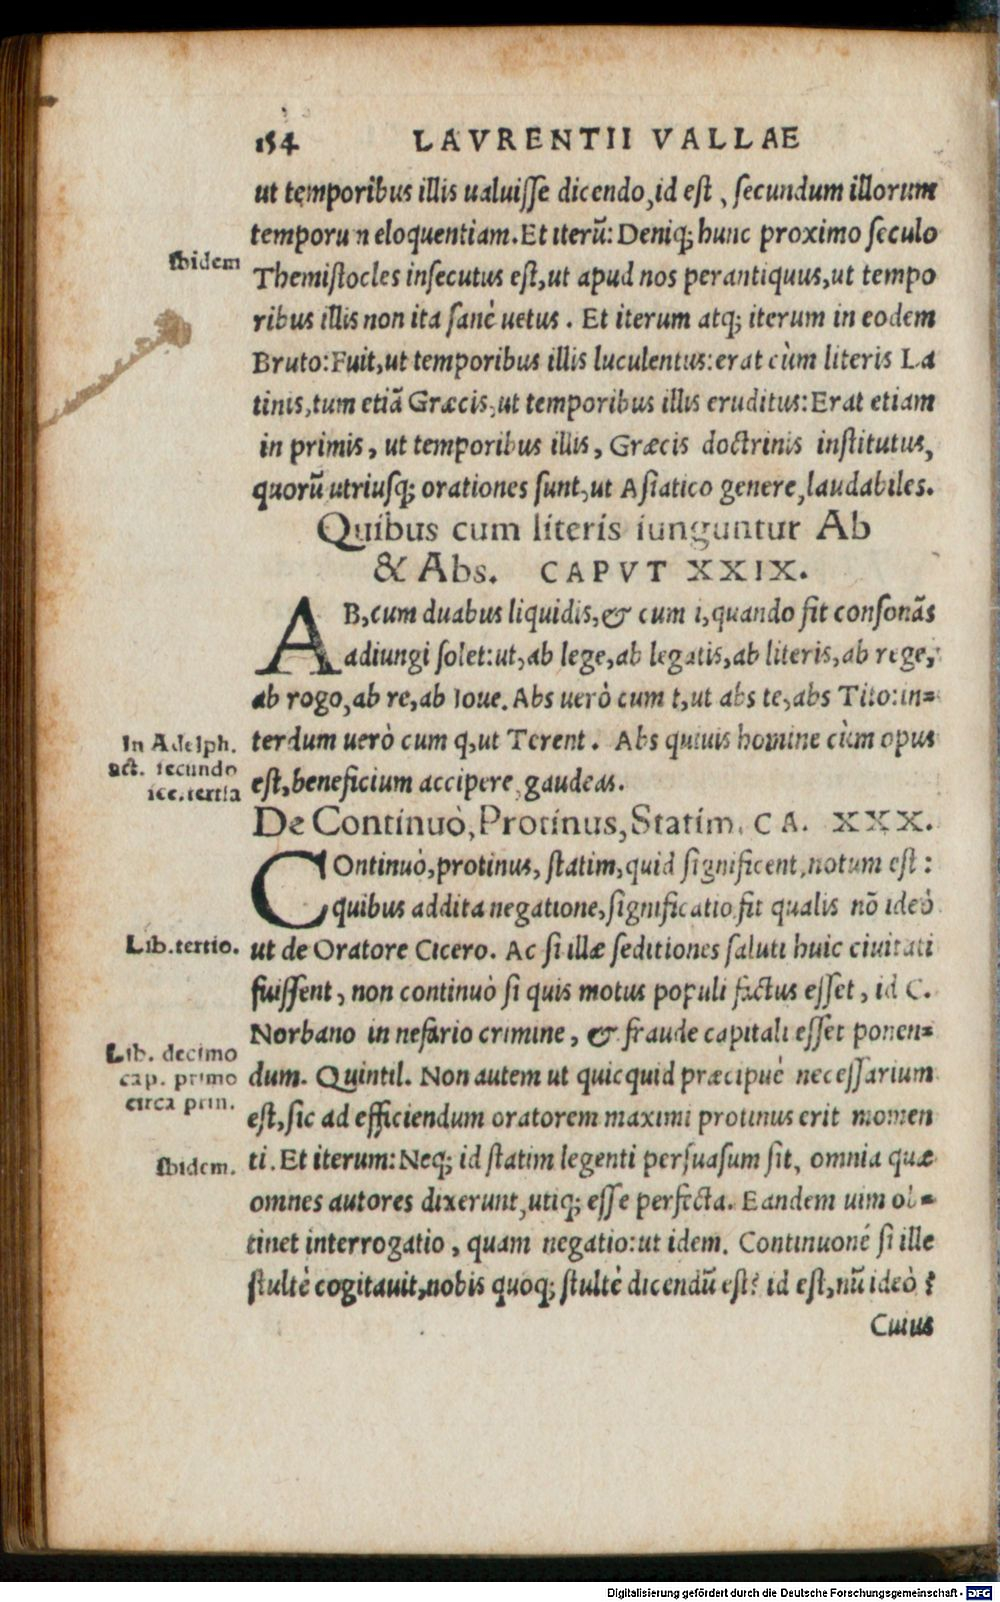 154 LAVRENTII VALLAE
ut temporibus illis ualuiſſe dicendo, id eſt, ſecundum illorum
temporun eloquentiam. Et iterũ: Deniq; hunc proximo ſeculo
Ibidem
Themiſtocles inſecutus eſt, ut apud nos perantiquus, ut tempo
ribus illis non ita ſanè uetus. Et iterum atq; iterum in eodem
Bruto: Fuit, ut temporibus illis luculentus: erat cùm literis La
tinis, tum etiã Græcis, ut temporibus illis eruditus: Erat etiam
in primis, ut temporibus illis, Græcis doctrinis inſtitutus,
quorũ utriusq; orationes ſunt, ut Aſiatico genere, laudabiles.
Quibus cum literis iunguntur Ab
& Abs. CAPVT XXIX.
AB, cum duabus liquidis, & cum i, quando fit conſonãs
adiungi ſolet: ut, ab lege, ab legatis, ab literis, ab rege,
ab rogo, ab re, ab Ioue. Abs uerò cum t, ut abs te, abs Tito: in=
In Adelph.
act. ſecundo
ſce. tertia
terdum uerò cum q, ut Terent. Abs quiuis homine cùm opus
eſt, beneficium accipere, gaudeas.
De Continuò, Protinus, Statim. CA. XXX.
COntinuò, protinus, ſtatim, quid ſignificent, notum eſt:
quibus addita negatione, ſignificatio fit qualis nõ ideò
Lib. tertio.
ut de Oratore Cicero. Ac ſi illæ ſeditiones ſaluti huic ciuitati
fuiſſent, non continuò ſi quis motus populi factus eſſet, id C.
Norbano in nefario crimine, & fraude capitali eſſet ponen=
Lib. decimo
cap. primo
circa prin.
dum. Quintil. Non autem ut quicquid præcipuè neceſſarium
eſt, ſic ad efficiendum oratorem maximi protinus erit momen
Ibidem.
ti. Et iterum: Neq; id ſtatim legenti perſuaſum ſit, omnia quæ
omnes autores dixerunt, utiq; eſſe perfecta. Eandem uim ob=
tinet interrogatio, quam negatio: ut idem. Continuoné ſi ille
ſtultè cogitauit, nobis quoq; ſtultè dicendũ eſt? id eſt, nũ ideò?
Cuius
Digitalisierung gefördert durch die Deutsche Forschungsgemeinschaft - DFG